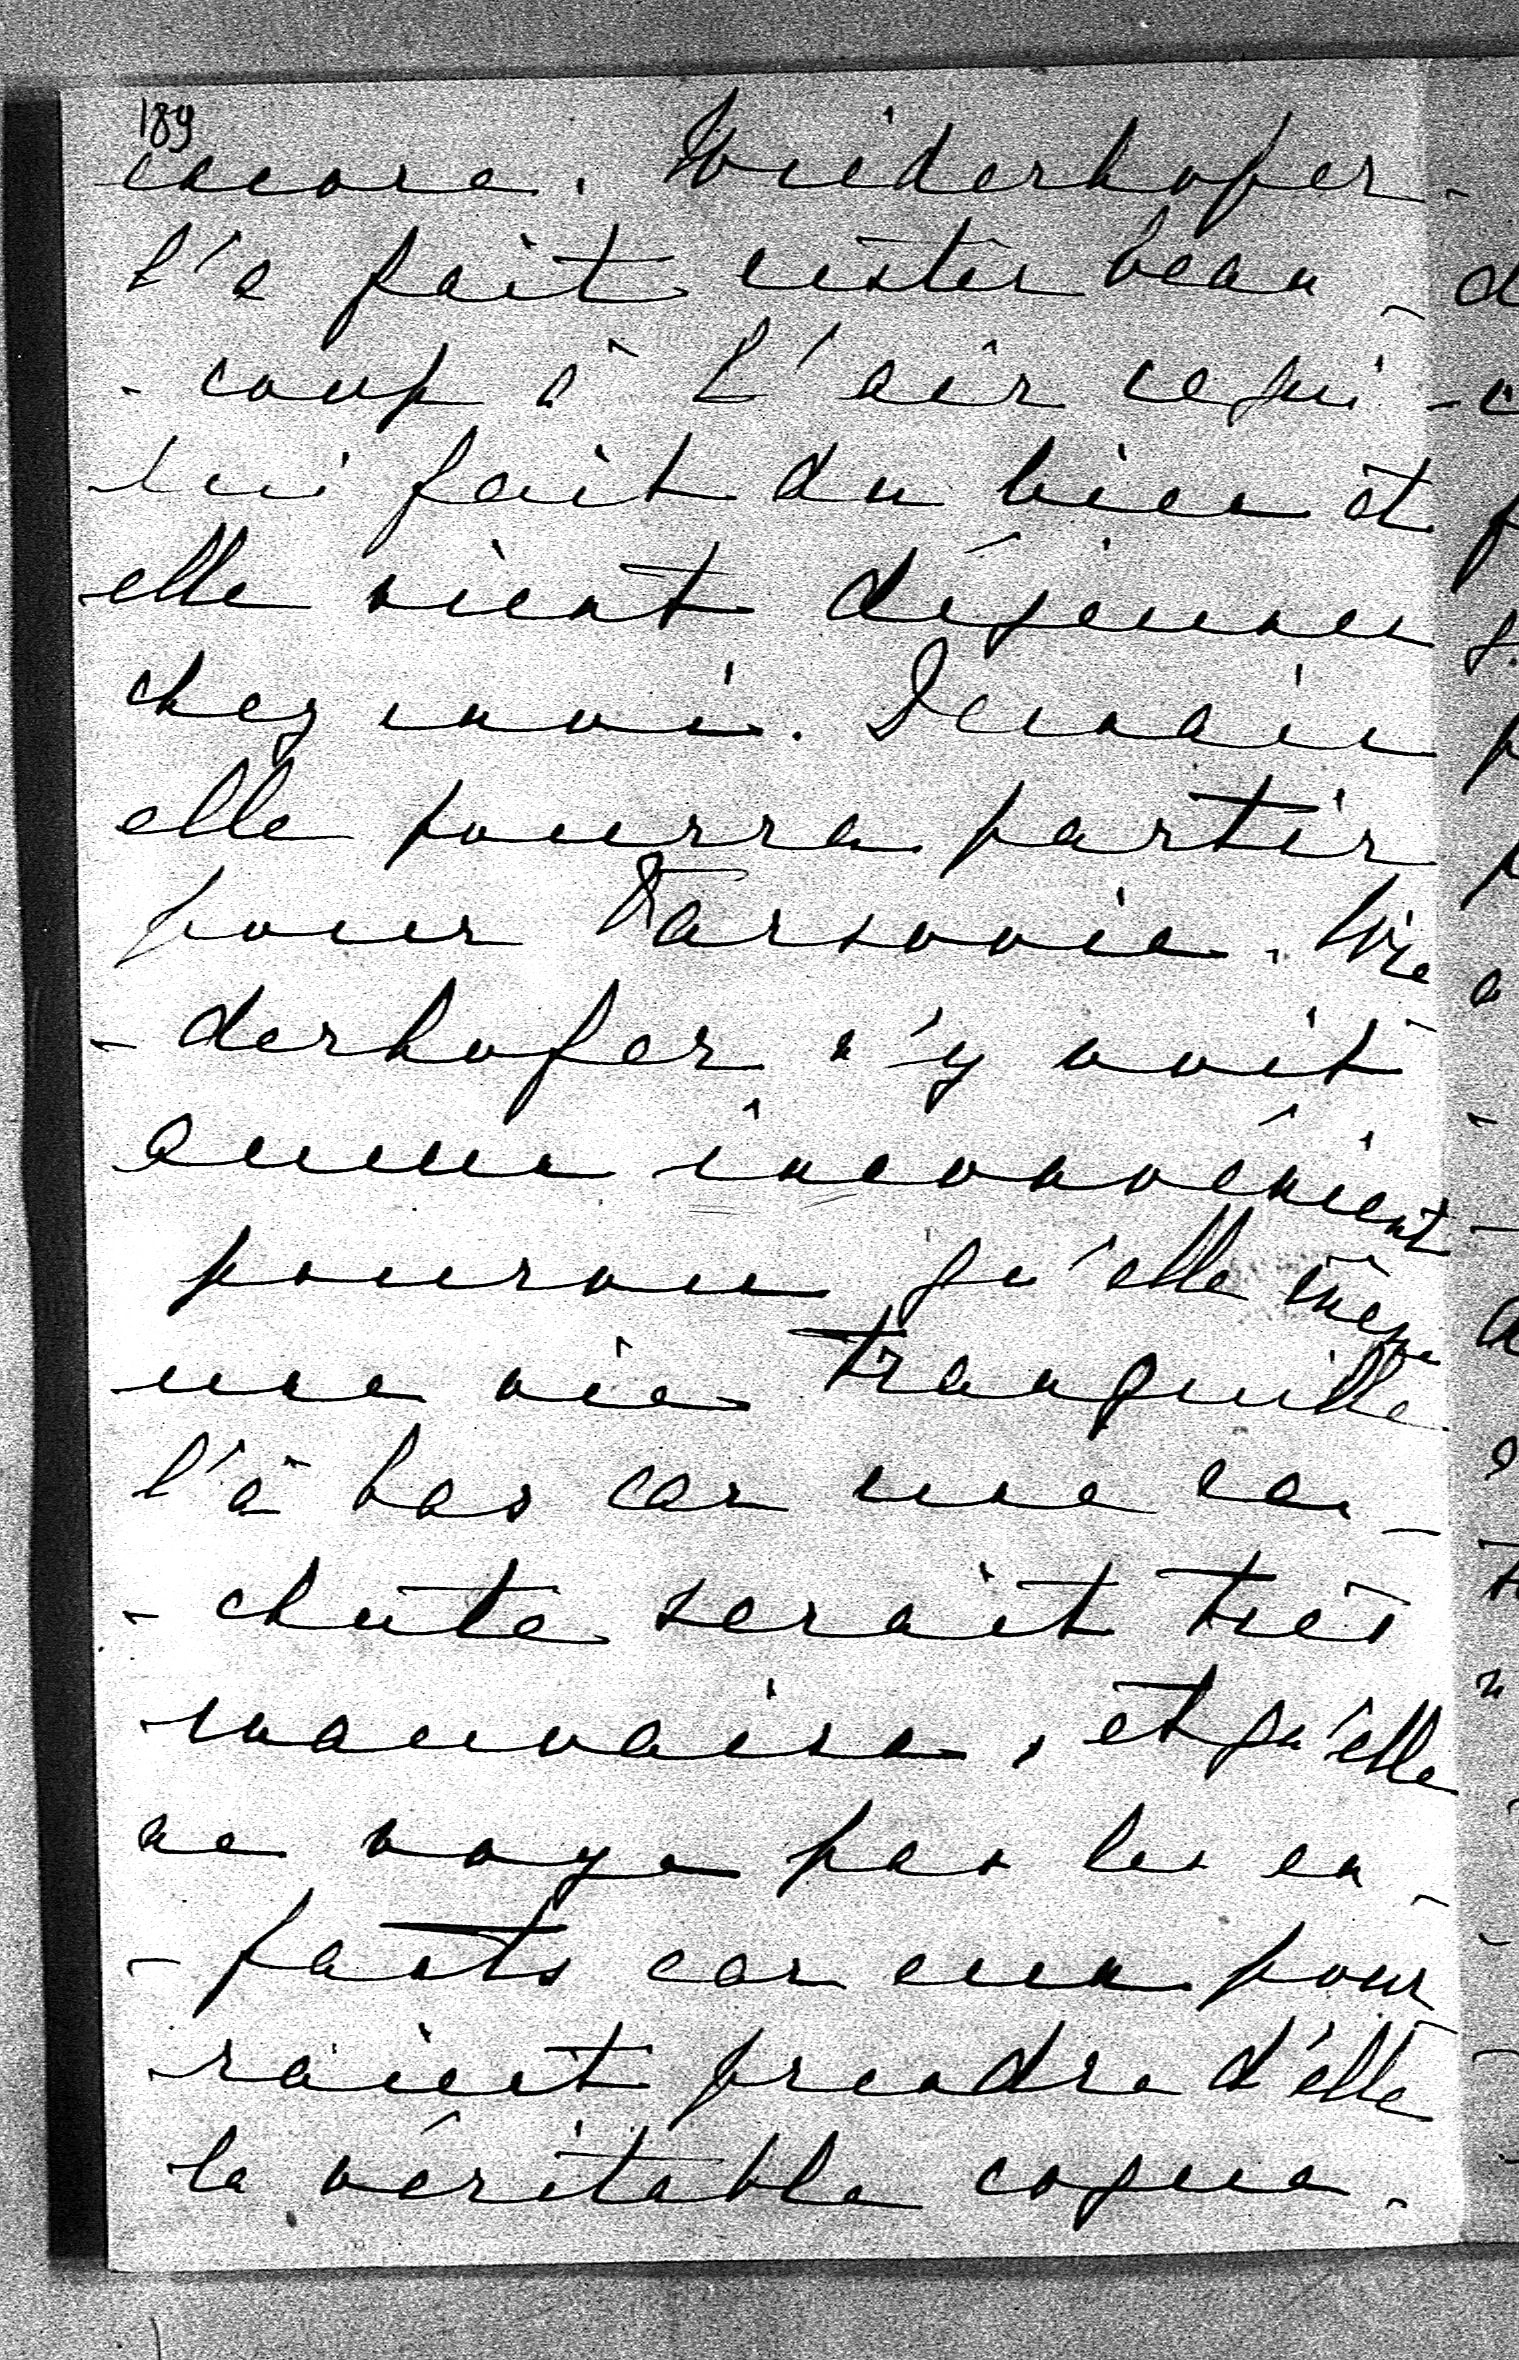 189
encore. Wiederhofer
l'a fait rester beau-
-coup à l'air ce qui
lui fait du bien et
elle vient déjeuner
chez moi. Demain
elle pourra partir
pour Varsovie. Wie
-derhofer n'y voit
aucun inconvénient
pourvu qu'elle mène
une vie tranquille
l'à bas car une re-
-chute serait très
mauvaise, et qu'elle
ne voye pas les en-
-fants car eux pour-
raient prendre d'elle
la véritable coque-